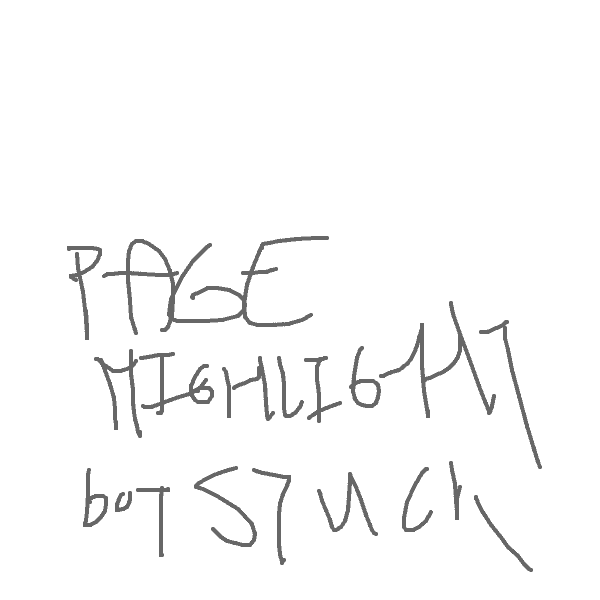 PAGE
HIGHLIGHT
bOT STUCK